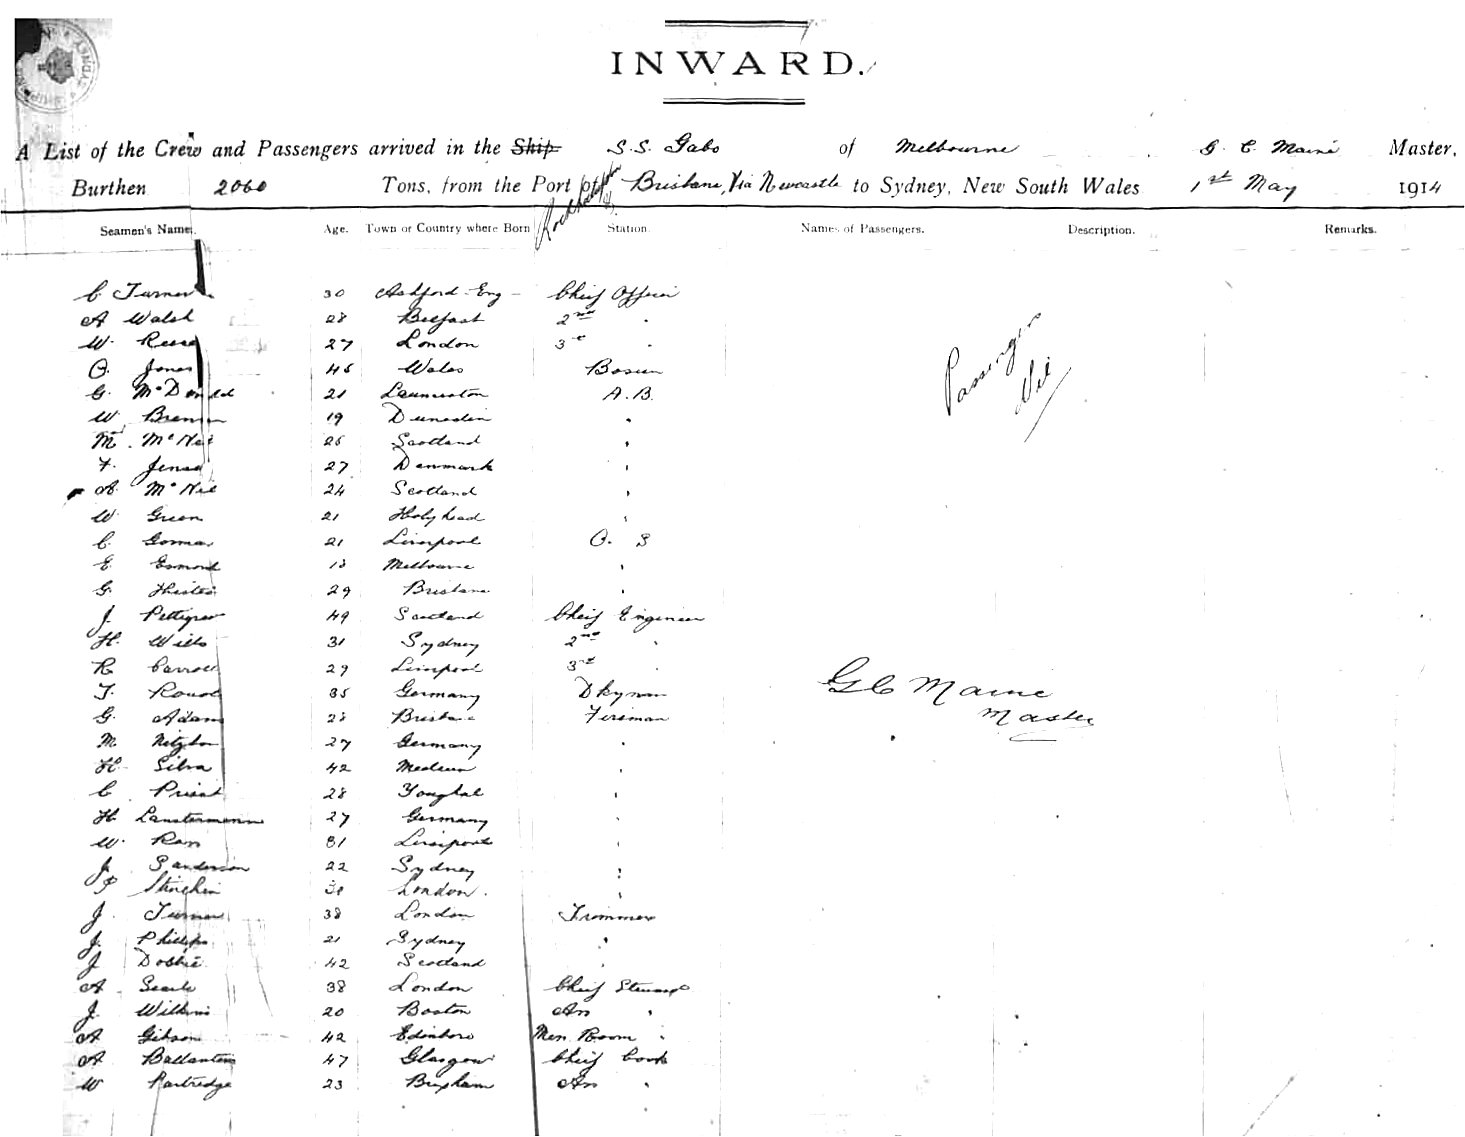 INWARD.
A List of the Crew and Passengers arrived in the Ship S.S. Gabo of Melbourne G. C. Maine Master,
Burthen 2060 Tons, from the Port of Rockhampton & Brisbane, Via Newcastle to Sydney, New South Wales 1st May 1914
Seamen's Name. Age. Town or Country where Born Station. Names of Passengers. Description. Remarks.
C Turner 30 Ashford Eng Chief Officer
A Walsh 28 Belfast 2nd "
W. Reese 27 London 3rd "
O. Jones 45 Wales Bosun
G. McDonald 21 Launceston A.B.
W Brennan 19 Dunedin "
M. McNeil 26 Scotland "
F. Jensen 27 Denmark "
A. McNeil 24 Scotland "
W. Green 21 Holyhead "
C. Gorman 21 Liverpool O. S
E. Esmond 18 Melbourne "
G. 29 Brisbane "
J. Pettigrew 49 Scotland Chief Engineer
H. Wills 31 Sydney 2nd "
R Carroll 29 Liverpool 3rd "
T. 35 Germany Dkyman
G. Adams 28 Brisbane Fireman
M 27 Germany "
H. Silva 42 "
C. Priest 28 Youghal "
H. Lanstermann 27 Germany "
W. 31 Liverpool "
J. Sanderson 22 Sydney "
P London "
J. Turner 38 London Trimmer
J. Phillips 21 Sydney "
J Dobbie 42 Scotland
A. Searle 38 London Chief Steward
J. Wilkins 20 Boston Ass "
A Gibson 42 Edinboro Mess Room "
A Ballantine 47 Glasgow Chief Cook
W Partridge 23 Brixham Ass "
Passengers
Nil
G C Maine
Master